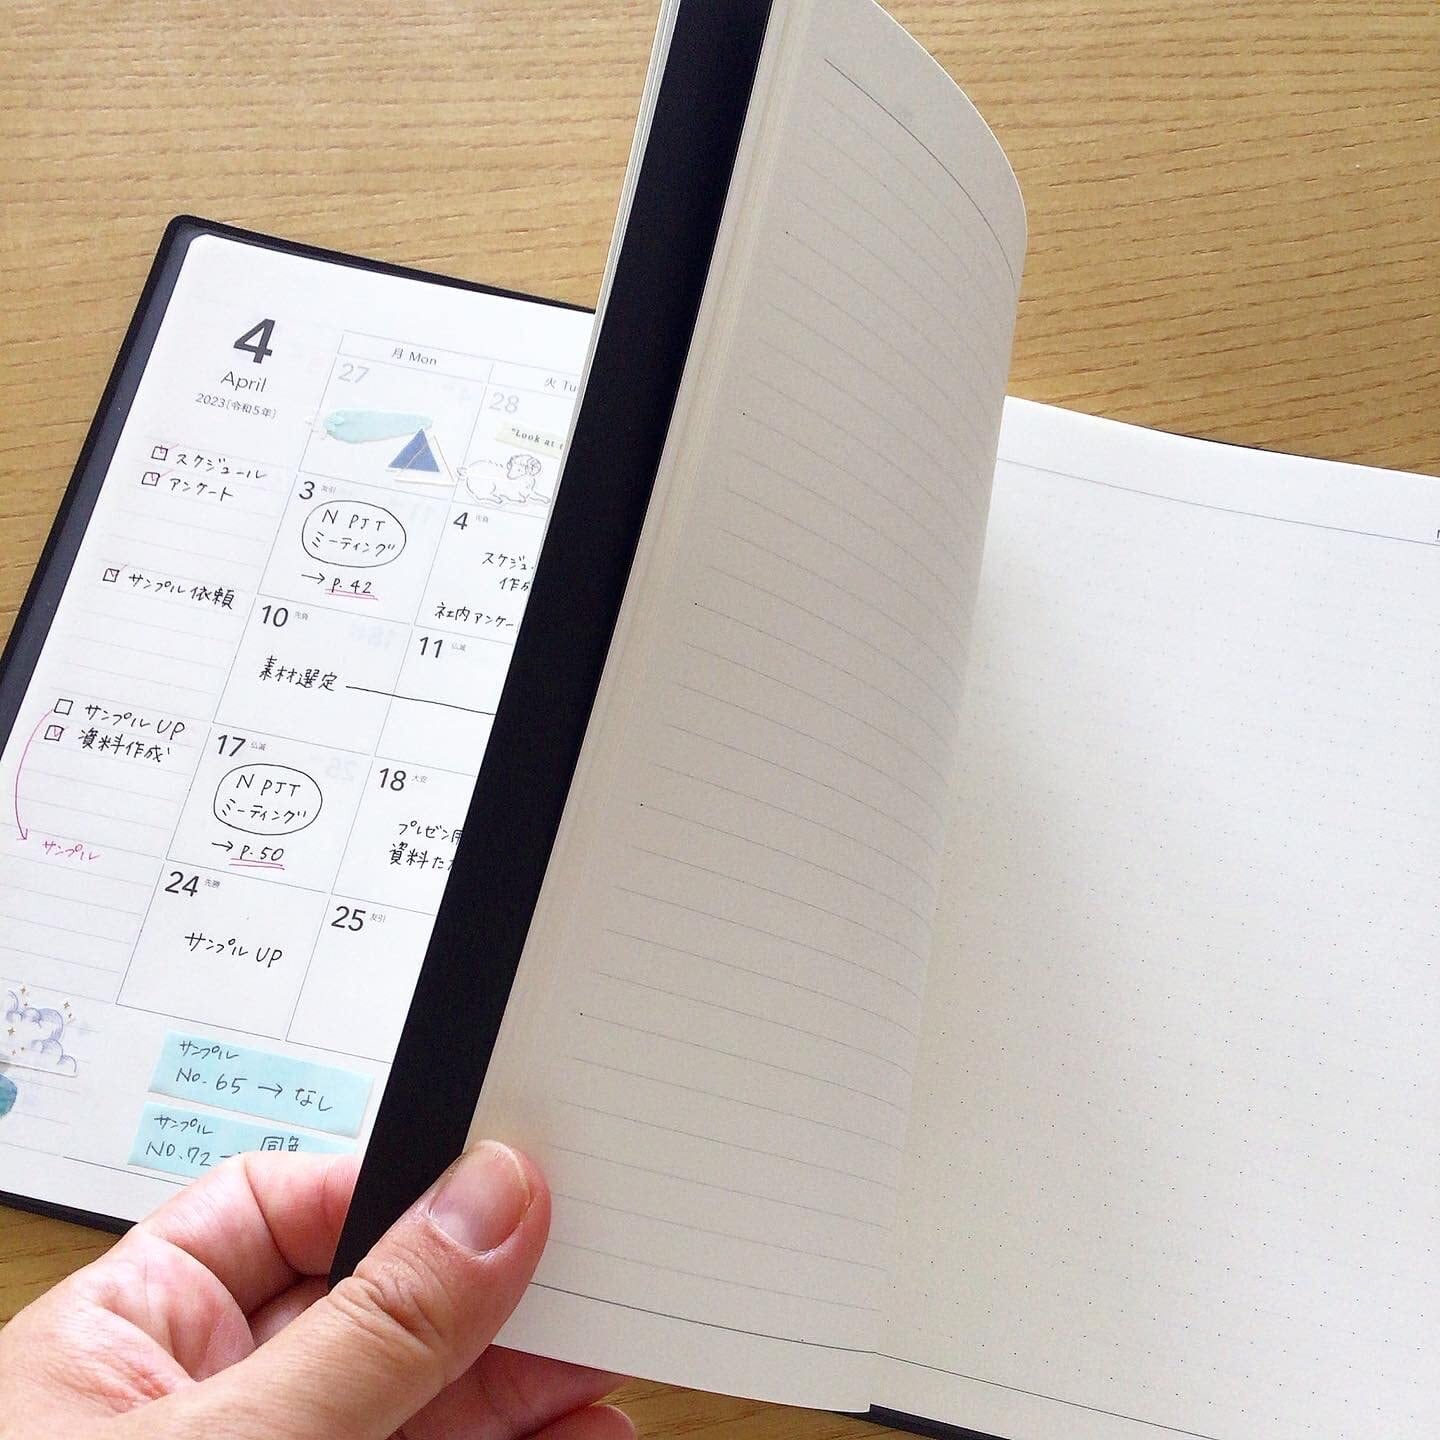 4
April
2023〔令和5年〕
スケジュール
アンケート
サンプル依頼
サンプル UP
資料作成
サンプル
月 Mon
火 Tu
27
28
"Look at t
3 友引
N PJT
ミーティング
→ p.42
4 先負
スケジュー
作成
社内アンケー
10 先負
素材選定
11 仏滅
17 仏滅
N PJT
ミーティング
→ p.50
18 大安
プレゼン用
資料た
24 先勝
サンプル UP
25 友引
サンプル
No.65 → なし
サンプル
NO.72 → 同色